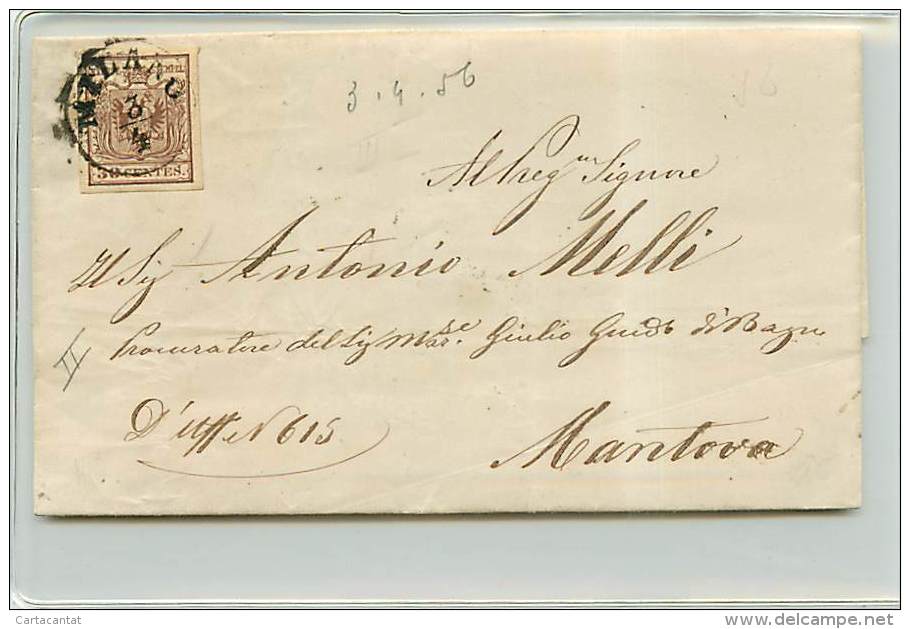 MILANO
3/4
30 CENTES.
3.4.56
Al Preg.mo Signore
Il Sig Antonio Melli
II
Procuratore del Sig Mar.se Giulio Guido di Bagno
D'Uff N 615
Mantova
Cartacantat
delcampe.net